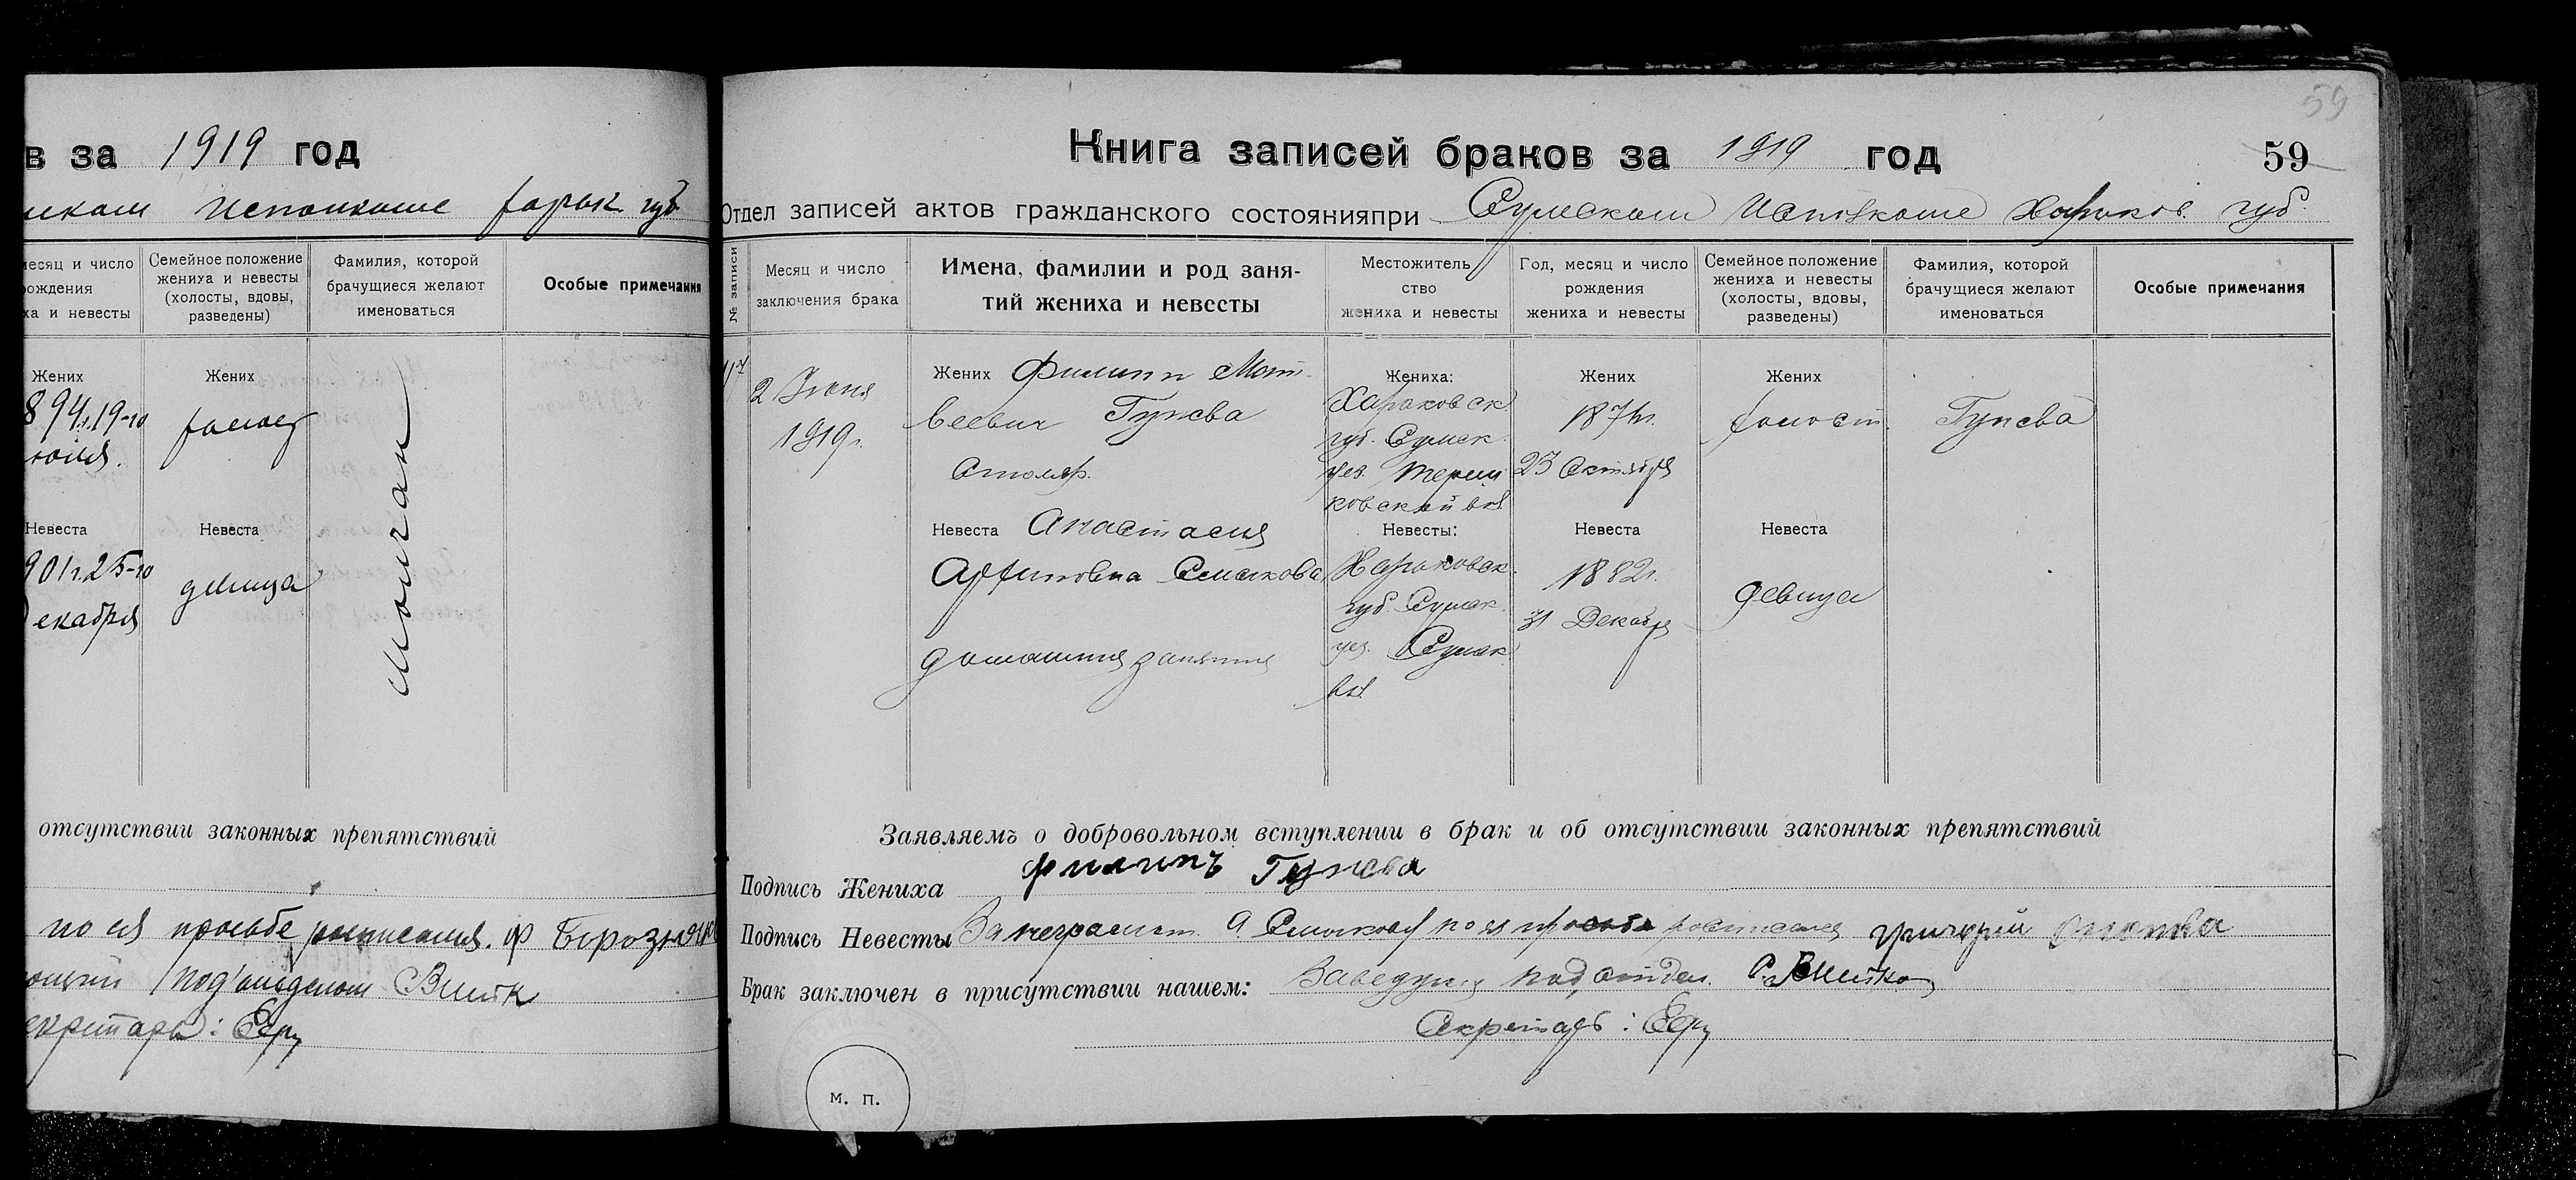 в за 1919 год
Исполкоме Харьк. губ
месяц и число
рождения
ха и невесты
Семейное положение
жениха и невесты
(холосты, вдовы,
разведены)
Фамилия, которой
брачущиеся желают
именоваться
Особые примечания
Жених
894г. 19-го
юля.
Жених
холост
Невеста
901г. 25-го
Декабря
Невеста
девица
отсутствии законных препятствий
по ея просьбе росписался. Ф
ющий под'отделом
екретарь:
59
Книга записей браков за 1919 год
59
Отдел записей актов гражданского состоянияпри Сумском Исполкоме Харьков. губ.
№ записи
Месяц и число
заключения брака
Имена, фамилии и род заня-
тий жениха и невесты
Местожитель
ство
жениха и невесты
Год, месяц и число
рождения
жениха и невесты
Семейное положение
жениха и невесты
(холосты, вдовы,
разведены)
Фамилия, которой
брачущиеся желают
именоваться
Особые примечания
2 Июня
1919г.
Жених Филипп Мат-
веевич Гунсва
Столяр.
Жениха:
Харьковск.
губ. Сумск.
уез.
ковской вол.
Жених
187
23 Октября
Жених
холост.
Гунсва
Невеста Анастасия
Смыкова
домашния занятия
Невесты:
Харьковск.
губ. Сумск.
уез. Сумск.
вол.
Невеста
1882г.
31 Декабря
Невеста
девица
Заявляемъ о добровольном вступлении в брак и об отсутствии законных препятствий
Подпись Жениха Филипъ Гунсва
Подпись Невесты За неграмот. А. Смыковой по ея просьбе росписался Григорий
Брак заключен в присутствии нашем: Заведующ. под,отдел.
Секретарь:
м. п.